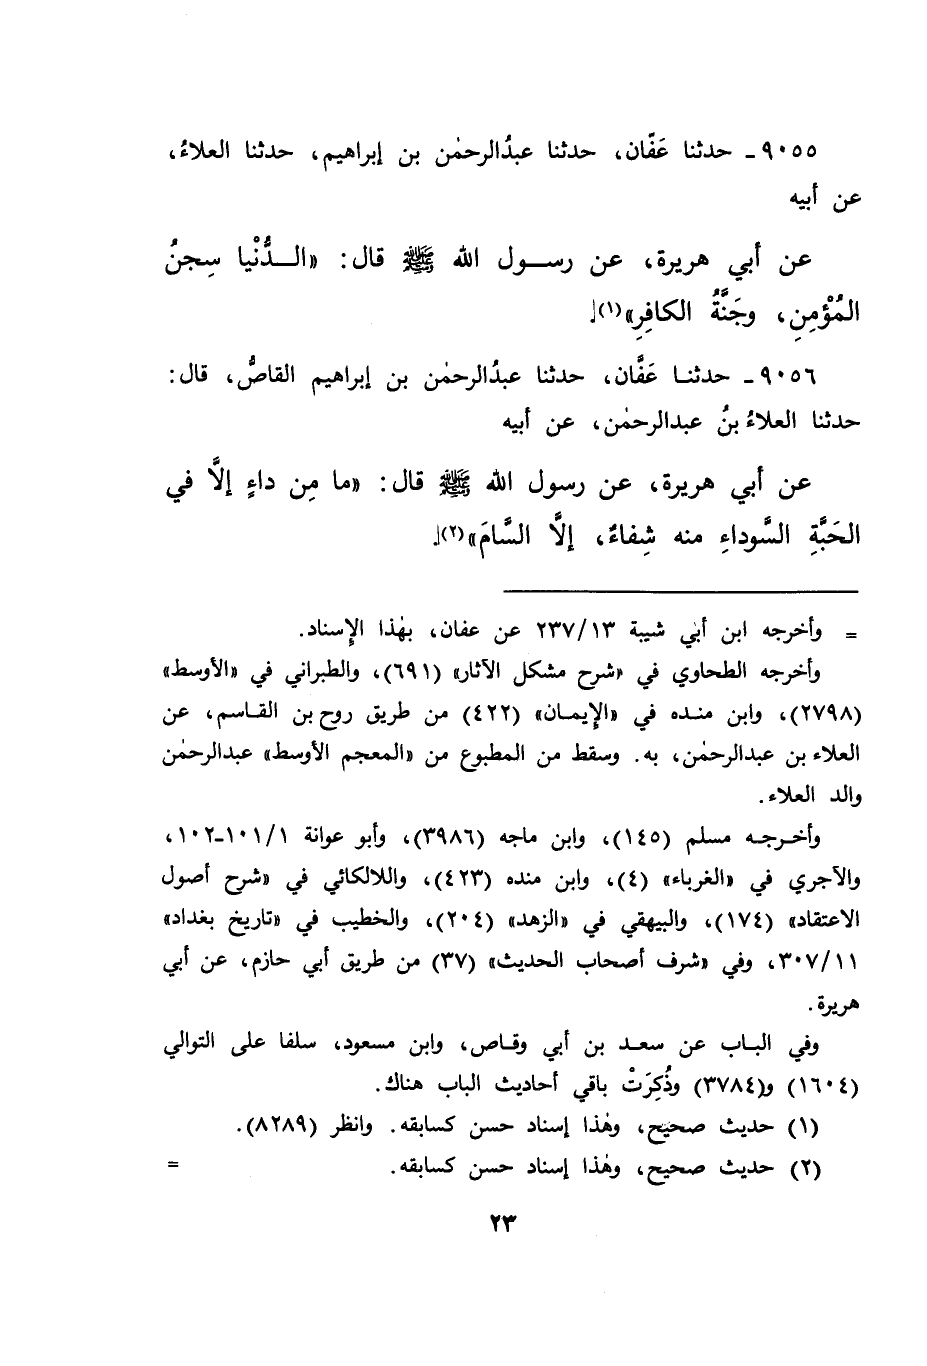 ٩٠٥٥ ـ حدثنا عَفّان، حدثنا عبدُالرحمٰن بن إبراهيم، حدثنا العلاءُ،
عن أبيه
عن أبي هريرة، عن رسـول الله ﷺ قال: «الـدُّنْيا سِجنُ
المُؤْمِنِ، وجَنَّةُ الكافِرِ»(١).
٩٠٥٦ ـ حدثنـا عَفَّان، حدثنا عبدُالرحمٰن بن إبراهيم القاصُّ، قال:
حدثنا العلاءُ بنُ عبدالرحمٰن، عن أبيه
عن أبي هريرة، عن رسول الله ﷺ قال: «ما مِن داءٍ إلَّا في
الحَبَّةِ السَّوداءِ منه شِفاءٌ، إلَّا السَّامَ»(٢).
= وأخرجه ابن أبي شيبة ٢٣٧/١٣ عن عفان، بهٰذا الإسناد.
وأخرجه الطحاوي في «شرح مشكل الآثار» (٦٩١)، والطبراني في «الأوسط»
(٢٧٩٨)، وابن منـده في «الإيمـان» (٤٢٢) من طريق روح بن القـاسم، عن
العلاء بن عبدالرحمٰن، به. وسقط من المطبوع من «المعجم الأوسط» عبدالرحمٰن
والد العلاء.
وأخـرجـه مسلم (١٤٥)، وابن ماجه (٣٩٨٦)، وأبو عوانة ١٠١/١-١٠٢،
والآجري في «الغرباء» (٤)، وابن منده (٤٢٣)، واللالكائي في «شرح أصول
الاعتقاد» (١٧٤)، والبيهقي في «الزهد» (٢٠٤)، والخطيب في «تاريخ بغداد»
٣٠٧/١١، وفي «شرف أصحاب الحديث» (٣٧) من طريق أبي حازم، عن أبي
هريرة.
وفي البـاب عن سعـد بن أبي وقـاص، وابن مسعود، سلفا على التوالي
(١٦٠٤) و(٣٧٨٤) وذُكِرَتْ باقي أحاديث الباب هناك.
(١) حديث صحيح، وهٰذا إسناد حسن كسابقه. وانظر (٨٢٨٩).
(٢) حديث صحيح، وهٰذا إسناد حسن كسابقه. =
٢٣